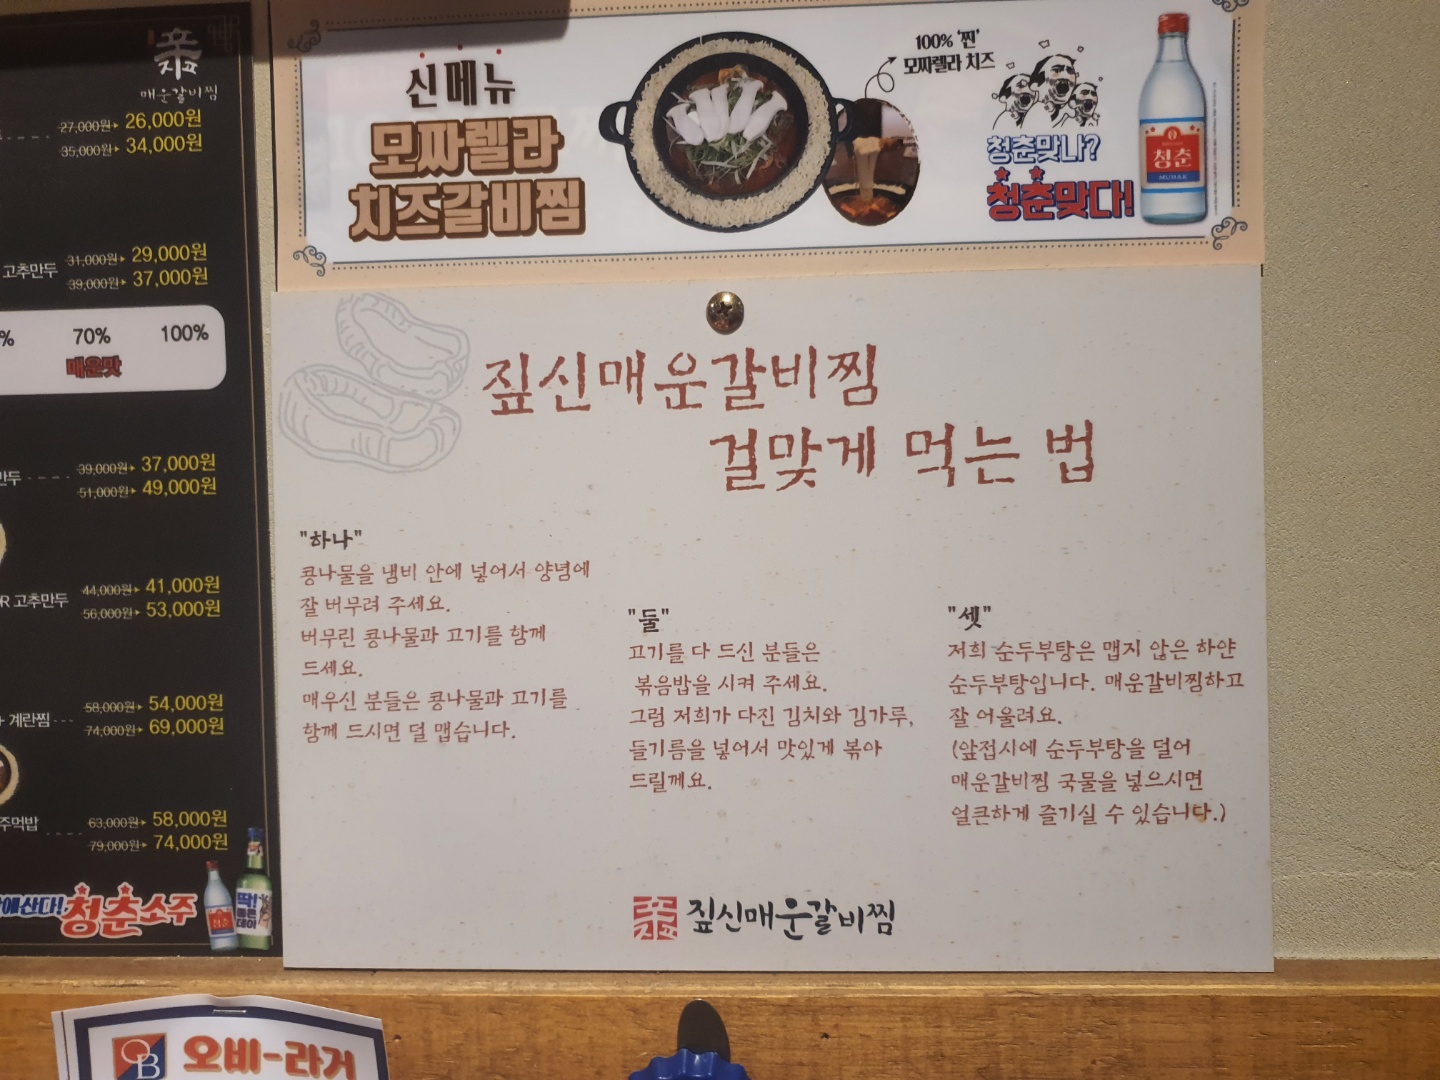 매운갈비찜
27,000원 26,000원
35,000원 34,000원
고추만두
31,000원 29,000원
39,000원 37,000원
70% 100%
매운맛
만두
39,000원 37,000원
51,000원 49,000원
고추만두
44,000원 41,000원
56,000원 53,000원
계란찜
58,000원 54,000원
74,000원 69,000원
주먹밥
63,000원 58,000원
79,000원 74,000원
청춘소주
신메뉴
모짜렐라
치즈갈비찜
100% '찐'
모짜렐라 치즈
청춘맞나?
청춘맞다!
청춘
짚신매운갈비찜
걸맞게 먹는 법
"하나"
콩나물을 냄비 안에 넣어서 양념에
잘 버무려 주세요.
버무린 콩나물과 고기를 함께
드세요.
매우신 분들은 콩나물과 고기를
함께 드시면 덜 맵습니다.
"둘"
고기를 다 드신 분들은
볶음밥을 시켜 주세요.
그럼 저희가 다진 김치와 김가루,
들기름을 넣어서 맛있게 볶아
드릴께요.
"셋"
저희 순두부탕은 맵지 않은 하얀
순두부탕입니다. 매운갈비찜하고
잘 어울려요.
(앞접시에 순두부탕을 덜어
매운갈비찜 국물을 넣으시면
얼큰하게 즐기실 수 있습니다.)
짚신매운갈비찜
OB 오비-라거